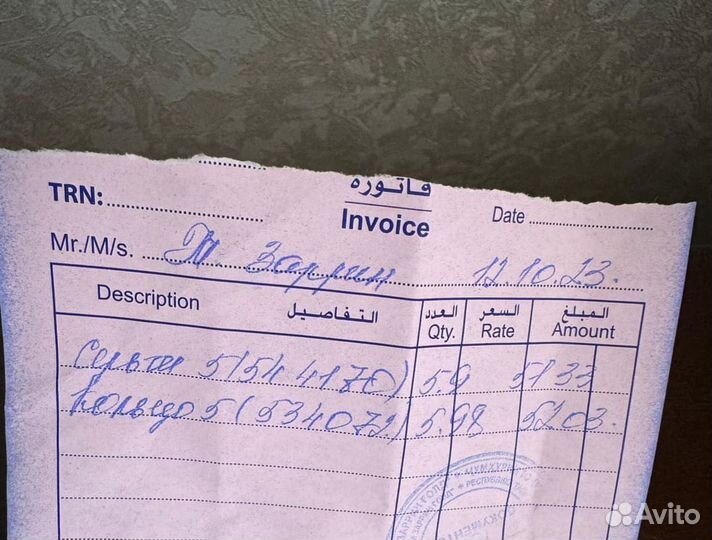 TRN:
فاتورة
Invoice
Date
Mr./M/s. Т. Заррин 12.10.23.
Description التفاصيل العدد Qty. السعر Rate المبلغ Amount
5(544170) 5.9 5133
кольцо 5(534072) 5.98 5203.
РЕСПУБЛИК
ДОКУМЕНТ
Avito